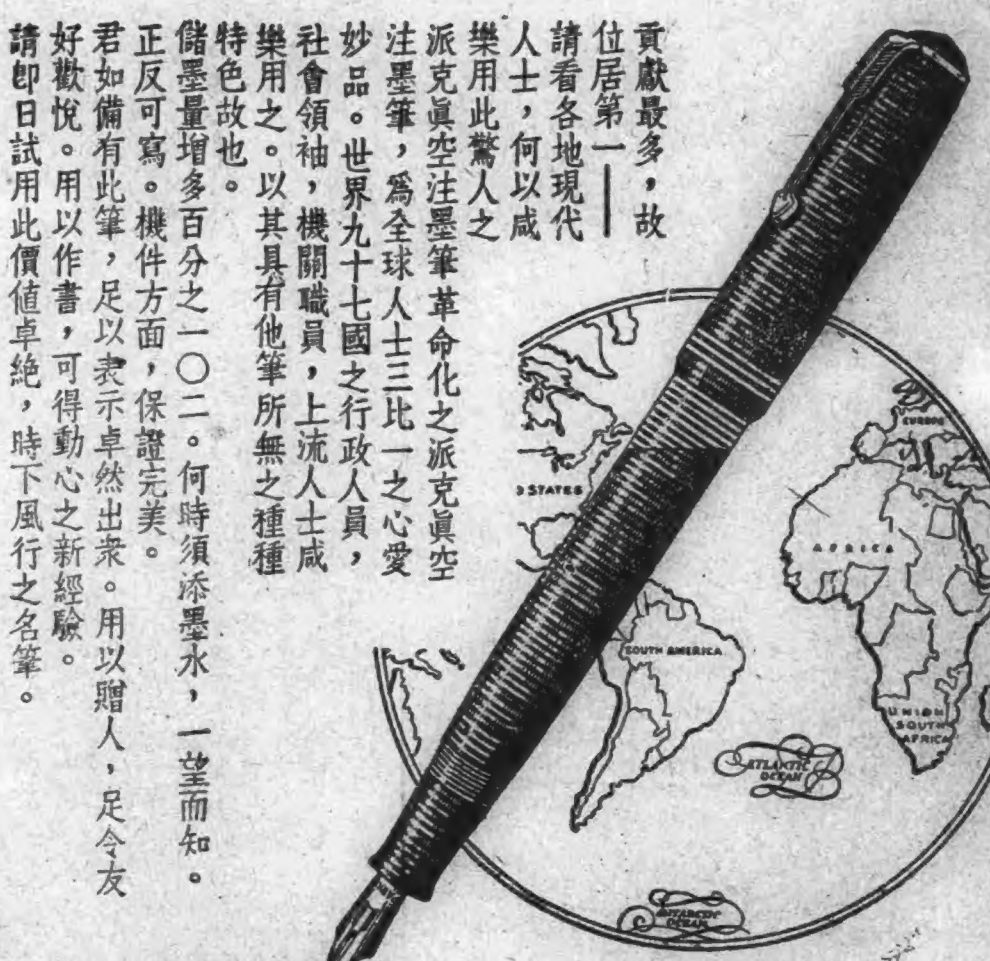 貢獻最多，故
位居第一——
請看各地現代
人士，何以咸
樂用此驚人之
派克眞空注墨筆革命化之派克眞空
注墨筆，爲全球人士三比一之心愛
妙品。世界九十七國之行政人員，
社會領袖，機關職員，上流人士咸
樂用之。以其具有他筆所無之種種
特色故也。
儲墨量增多百分之一〇二。何時須添墨水，一望而知。
正反可寫。機件方面，保證完美。
君如備有此筆，足以表示卓然出衆。用以贈人，足令友
好歡悅。用以作書，可得動心之新經驗。
請卽日試用此價値卓絶，時下風行之名筆。
EUROPE
D STATES
AFRICA
SOUTH AMERICA
UNION
SOUTH
AFRICA
ATLANTIC
OCEAN
ANTARCTIC
OCEAN